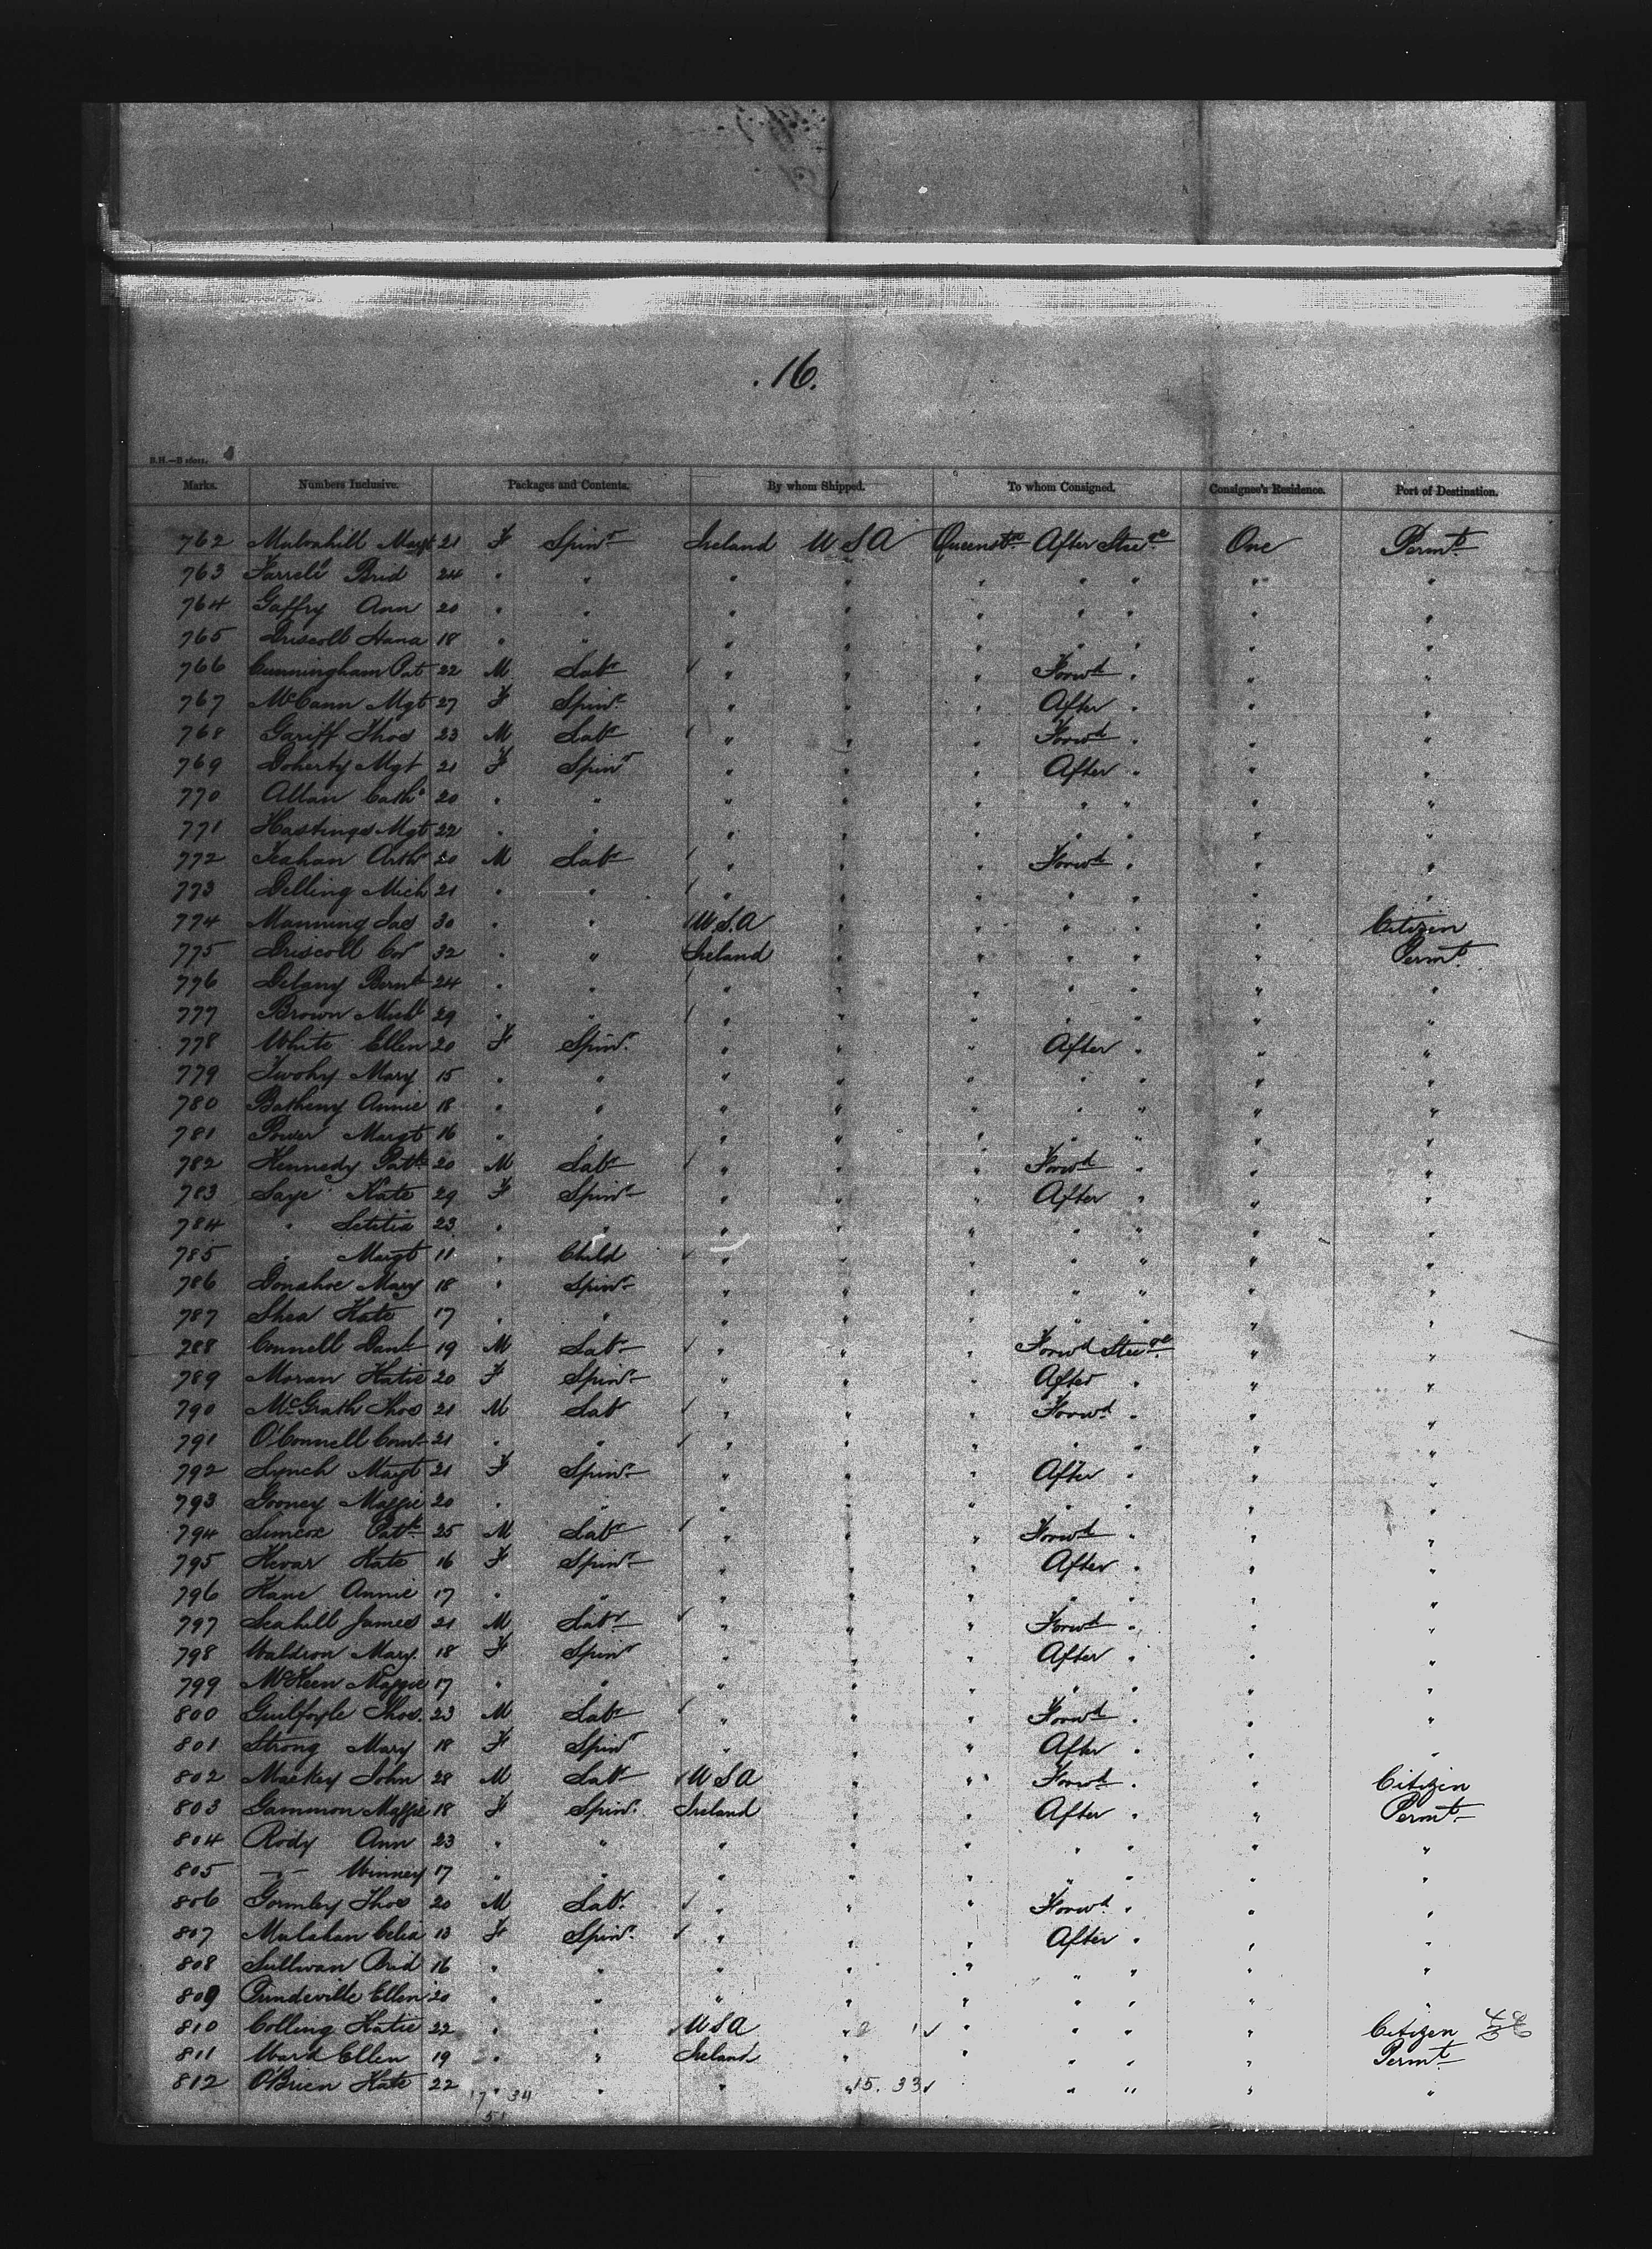 .16.
Marks. Numbers Inclusive. Packages and Contents. By whom Shipped. To whom Consigned. Consignee's Residence. Port of Destination.
762 Mulvahill Margt 21 F Spinr Ireland USA Queenstn After Steege One Permt
763 Farrell Brid 24 " " " " " " " " "
764 Gaffry Ann 20 " " " " " " " " "
765 Driscoll Hana 18 " " " " " " " " "
766 Cunningham Pat 22 M Labr " " " Forwd " " "
767 McCann Mgt 27 F Spinr " " " After " " "
768 Gariff Thos 23 M Labr " " " Forwd " " "
769 Doherty Mgt 21 F Spinr " " " After " " "
770 Allan Cathe 20 " " " " " " " " "
771 Hastings Mgt 22 " " " " " " " " "
772 Arthr 20 M Labr " " " Forwd " " "
773 Delling Mich 21 " " " " " " " " "
774 Manning Jas 30 " " U.S.A " " " " " Citizen
775 Driscoll Cor 32 " " Ireland " " " " " Permt
776 Delany Bernd 24 " " " " " " " " "
777 Brown Michl 29 " " " " " " " " "
778 White Ellen 20 F Spinr " " " After " " "
779 Twohy Mary 15 " " " " " " " " "
780 Annie 18 " " " " " " " " "
781 Power Margt 16 " " " " " " " " "
782 Kennedy Patk 20 M Labr " " " Forwd " " "
783 Saye Kate 29 F Spinr " " " After " " "
784 " Letitia 23 " " " " " " " " "
785 " Margt 11 " Child " " " " " " "
786 Donahoe Mary 18 " Spinr " " " " " " "
787 Shea Kate 17 " " " " " " " " "
788 Connell Danl 19 M Labr " " " Forwd Steege " "
789 Moran Katie 20 F Spinr " " " After " " "
790 McGrath Thos 21 M Lab " " " Forwd " " "
791 O'Connell Corns 21 " " " " " " " " "
792 Lynch Margt 21 F Spinr " " " After " " "
793 Maggie 20 " " " " " " " " "
794 Simcox Patk 25 M Labr " " " Forwd " " "
795 Kate 16 F Spinr " " " After " " "
796 Kane Annie 17 " " " " " " " " "
797 Scahill James 21 M Labr " " " Forwd " " "
798 Waldron Mary 18 F Spinr " " " After " " "
799 McKeen Maggie 17 " " " " " " " " "
800 Guilfoyle Thos. 23 M Labr " " " Forwd " " "
801 Strong Mary 18 F Spinr " " " After " " "
802 Mackey John 28 M Labr USA " " Forwd " " Citizen
803 Gammon Maggie 18 F Spinr Ireland " " After " " Permt
804 Rody Ann 23 " " " " " " " " "
805 -"- Winney 17 " " " " " " " " "
806 Gormley Thos 20 M Labr " " " Forwd " " "
807 Mulahan Celia 13 F Spinr " " " After " " "
808 Sullivan Brid 16 " " " " " " " " "
809 Ellen 20 " " " " " " " " "
810 Colling Katie 22 " " USA " " " " " Citizen
811 Ward Ellen 19 " " Ireland " " " " " Permt
812 O'Brien Kate 22 " " " " 15. 33 " " " "
17 34
51